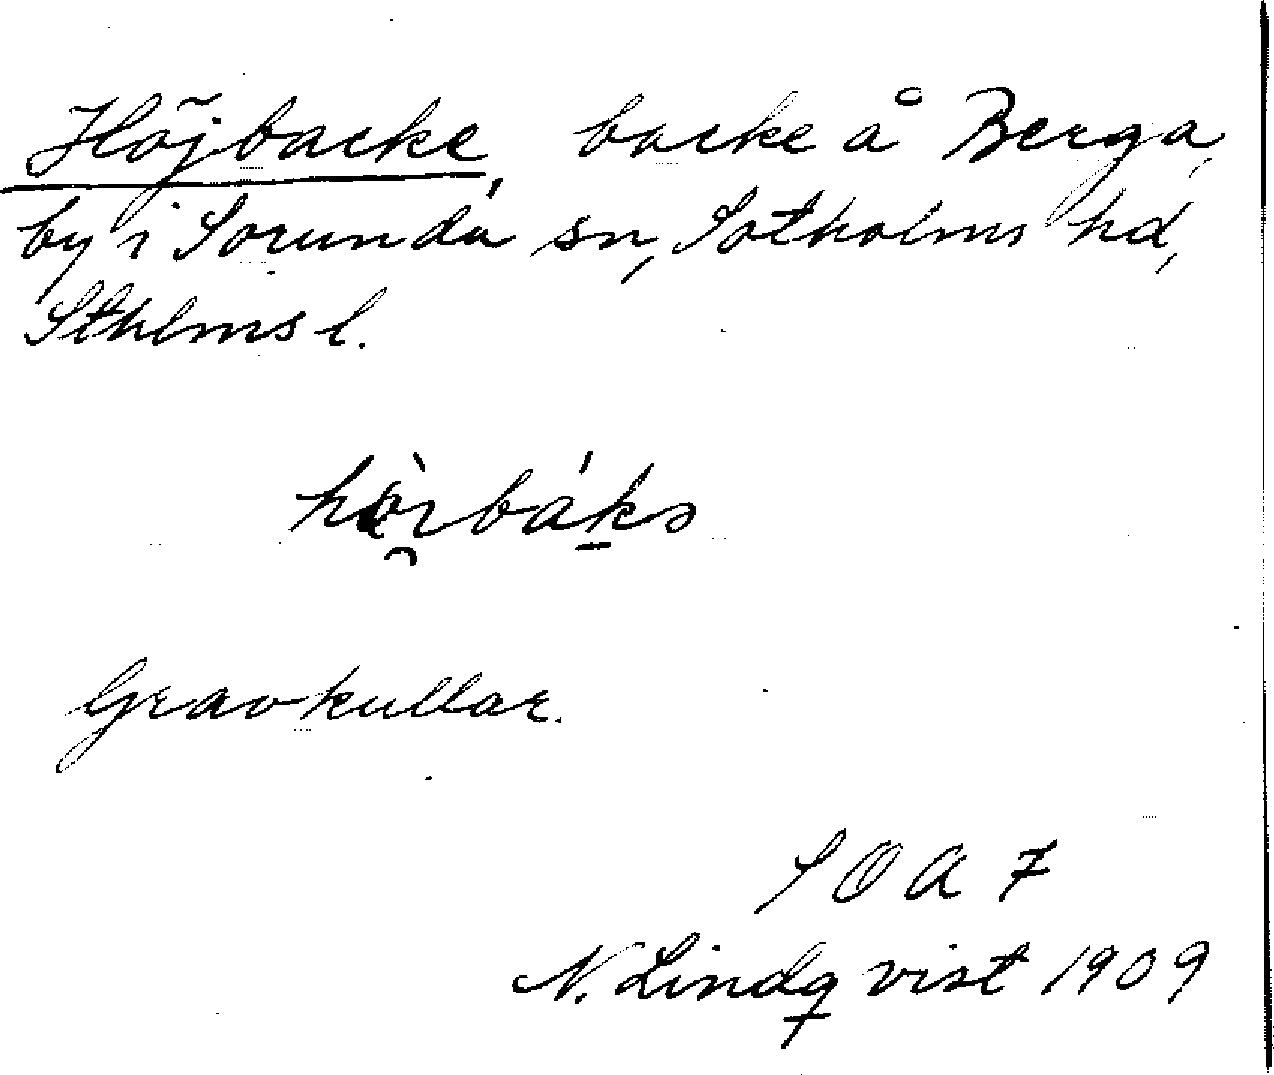 Höjbacke, backe å Berga,
by i Sorunda sn, Sotholms hd,
Sthlms l.
Gravkullar.
S O A 7
N. Lindqvist 1909